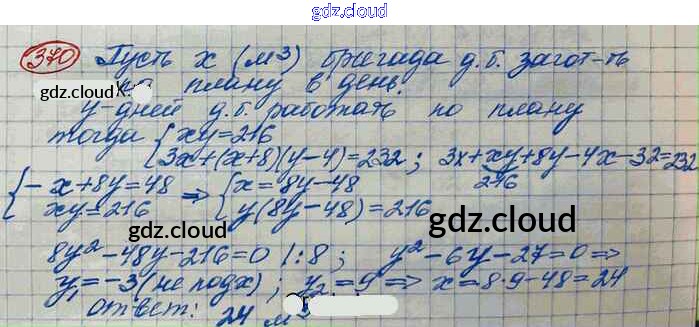 gdz.cloud
370 Пусть x (м³) бригада д.б. загот-ть
gdz.cloud по плану в день.
y-дней д.б. работать по плану
тогда { xy=216
3x+(x+8)(y-4)=232; 3x+xy+8y-4x-32=232
216
{ -x+8y=48 ⇒ { x=8y-48
xy=216 y(8y-48)=216
gdz.cloud
8y²-48y-216=0 |:8; y²-6y-27=0 ⇒
y₁=-3 (не подх); y₂=9 ⇒ x=8·9-48=24
ответ: 24 м³